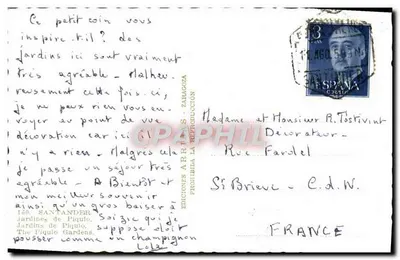 Ce petit coin vous
inspire-t-il? des
jardins ici sont vraiment
très agréable. Malheu-
reusement cette fois-ci,
je ne peux rien vous en-
voyer au point de vue
décoration car ici il
n'y a rien. Malgré cela
je passe un séjour très
agréable. A Bientôt et
mon meilleur souvenir
ainsi qu'un gros baiser à
Soizic qui je
suppose doit
pousser comme un champignon
SANTANDER
Jardines de Piquio.
Jardins de Piquio.
The Piquio Gardens.
EDICIONES ARRIBAS - ZARAGOZA
PROHIBIDA LA REPRODUCCIÓN
ESPAÑA
CORREOS
SANTANDER
Madame et Monsieur R. Tostivint
Décorateur
Rue Fardel
St Brieuc - C.d.N
FRANCE
CPAPHIL